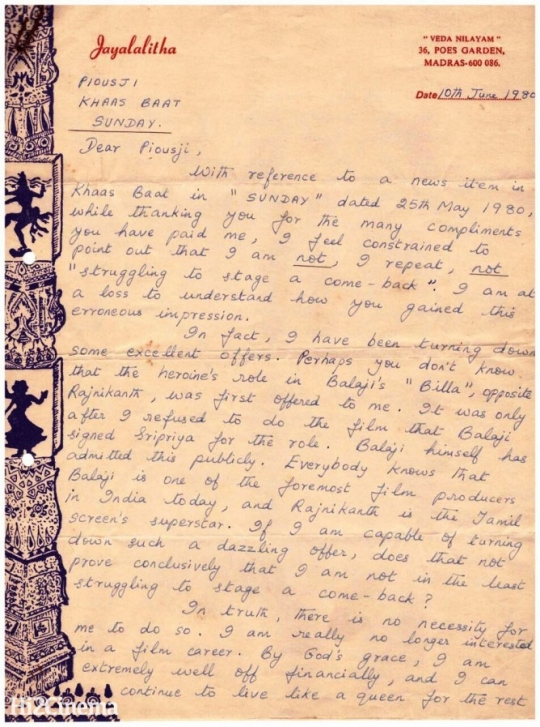 Jayalalitha
" VEDA NILAYAM "
36, POES GARDEN,
MADRAS-600 086.
Date 10th June 1980
PIOUSJI
KHAAS BAAT
SUNDAY.
Dear Piousji,
With reference to a news item in
Khaas Baat in "SUNDAY" dated 25th May 1980,
while thanking you for the many compliments
you have paid me, I feel constrained to
point out that I am not, I repeat, not
"struggling to stage a come-back". I am at
a loss to understand how you gained this
erroneous impression.
In fact, I have been turning down
some excellent offers. Perhaps you don't know
that the heroine's role in Balaji's "Billa", opposite
Rajnikanth, was first offered to me. It was only
after I refused to do the film that Balaji
signed Sripriya for the role. Balaji himself has
admitted this publicly. Everybody knows that
Balaji is one of the foremost film producers
in India today, and Rajnikanth is the Tamil
screen's superstar. If I am capable of turning
down such a dazzling offer, does that not
prove conclusively that I am not in the least
struggling to stage a come-back?
In truth, there is no necessity for
me to do so. I am really no longer interested
in a film career. By God's grace, I am
extremely well off financially, and I can
continue to live like a queen for the rest
Hi2Cinema